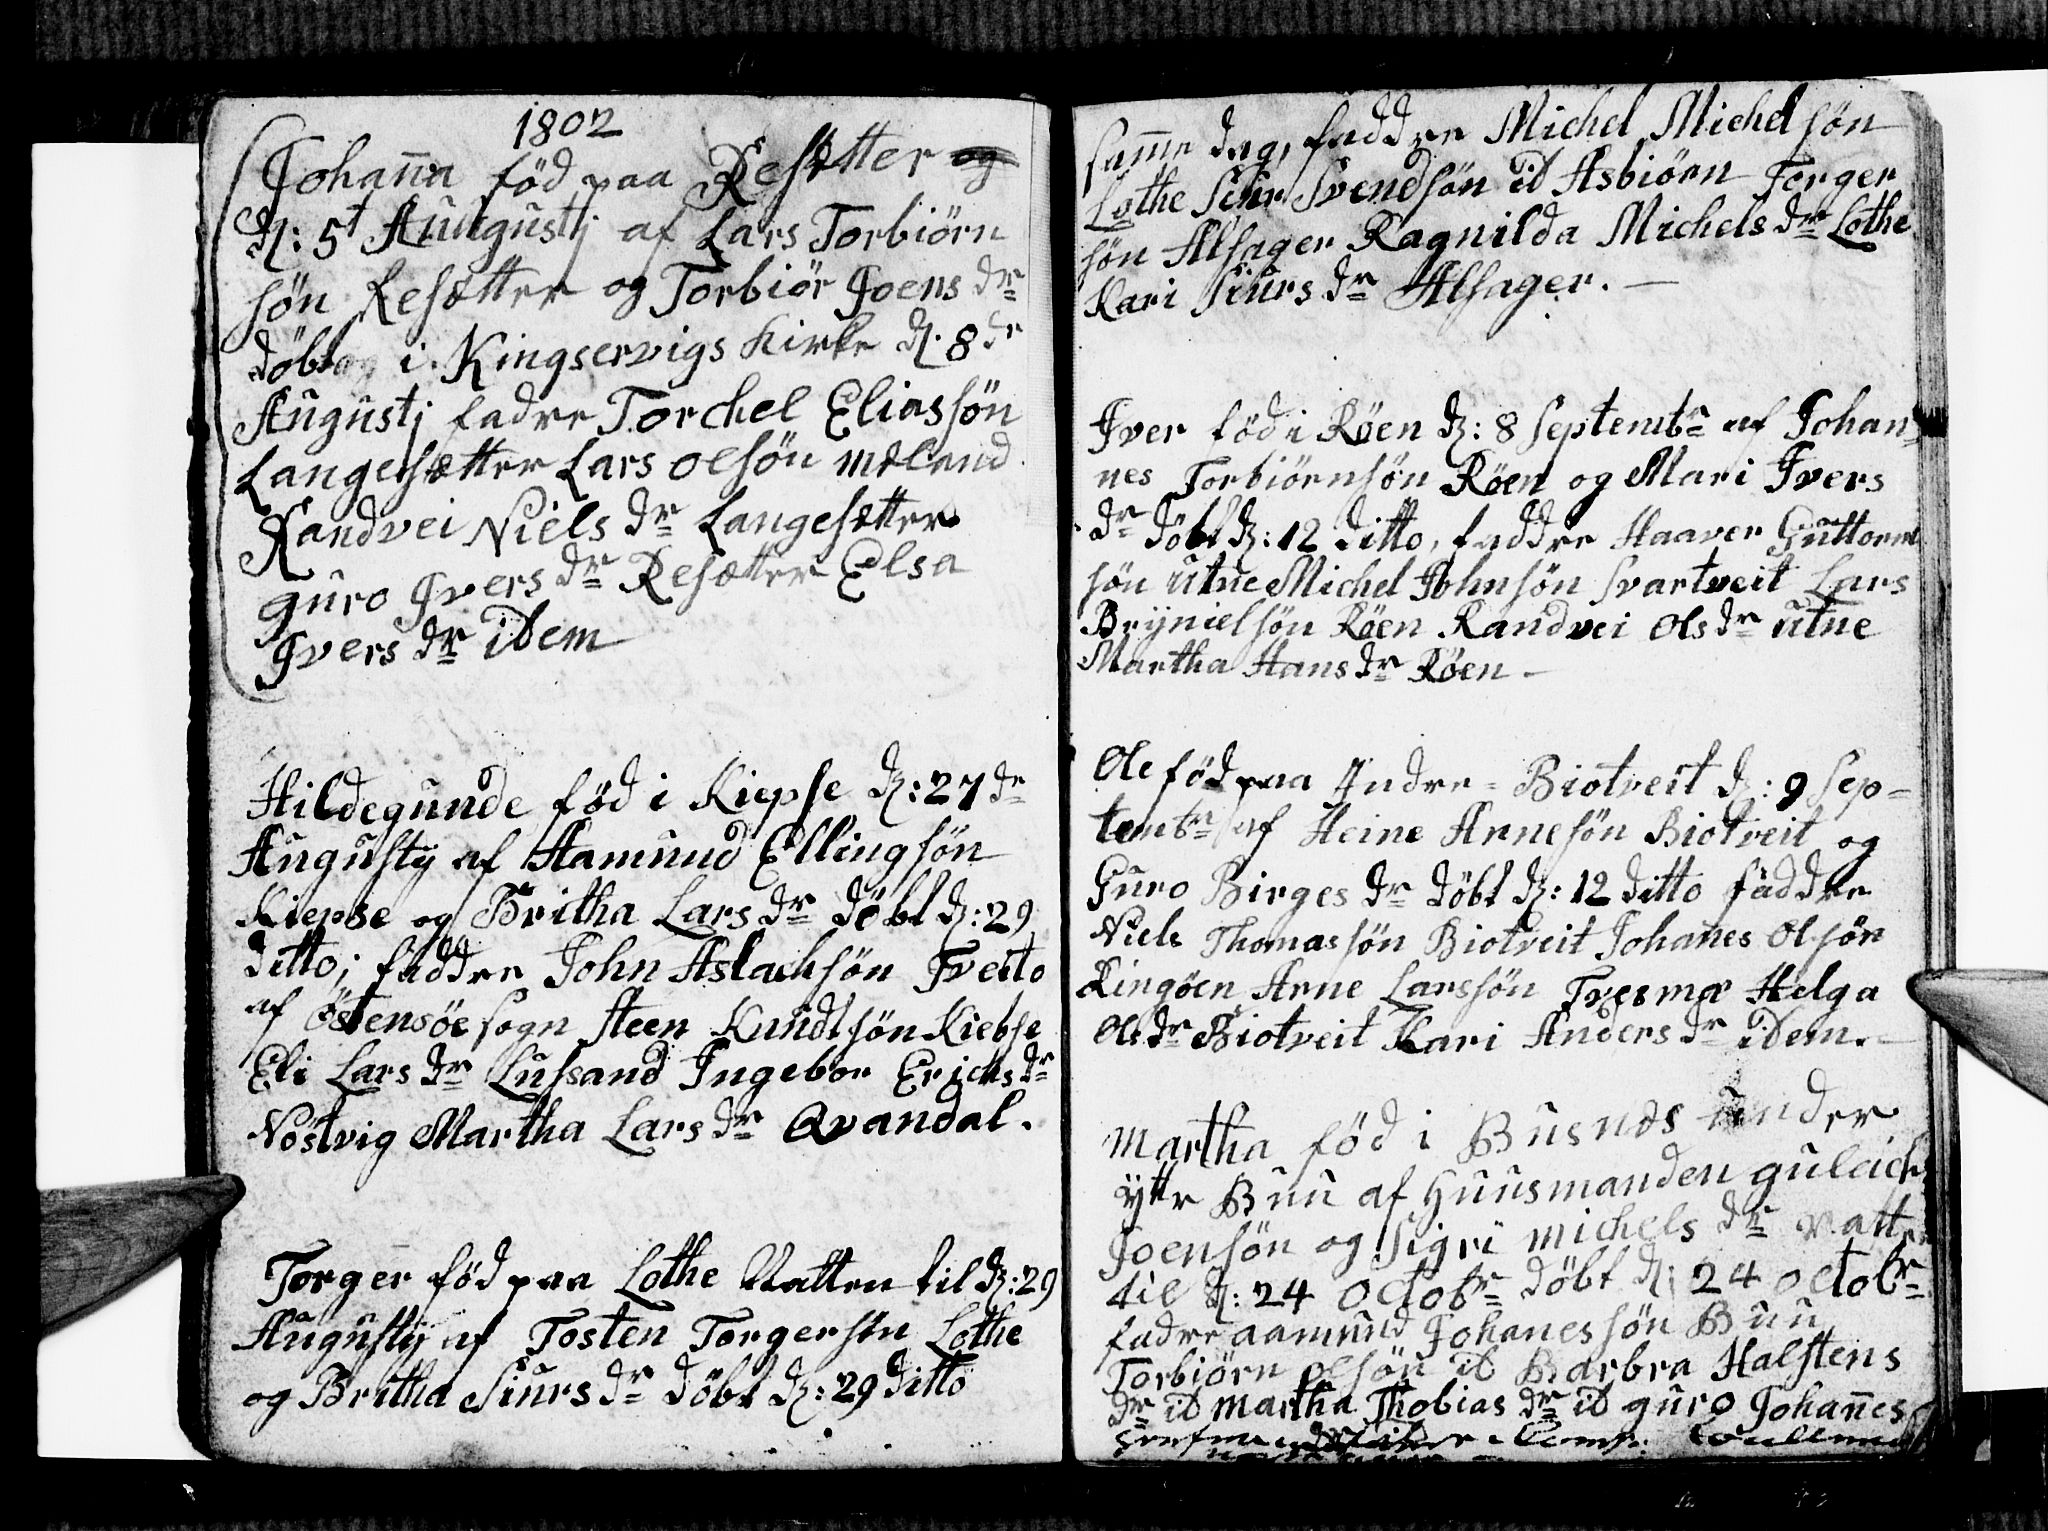 1802
Johan̄a fød paa Resætter og
d: 5t Augustj af Lars Torbiørn
søn Resætter og Torbiør Joens dr
døbt i Kingservigs Kirke d. 8de
Augustj fadre Torchel Eliassøn
Langesætter Lars olsøn mæland
Randvei Niels dr Langesætter
guro Jvers dr Resætter Elsa
Jvers dr iDem
Hildegunde fød i Kiepse d: 27de
Augustij af Aamund Ellingsøn
Kiepse og Britha Lars dr døbt d: 29
ditto; faddre John Aslachsøn Tveito
af Østensøe sogn Steen Knudtsøn Kiebse
Eli Lars dr Lussand Ingebor Erichs dr
Nostvig Martha Lars dr Qvandal.
Torger fød paa Lothe Natten til d: 29
Augustij af Tosten Torgersøn Lothe
og Britha Siurs dr døbt d: 29 ditto
sam̄e dag, faddre Michel Michelsøn
Lothe Siur Svendsøn id Asbiørn Torger
søn Alsager Ragnilda Michels dr Lothe
Kari Siurs dr Alsager. —
Jver fød i Røen d: 8 Septembr af Johan-
nes Torbiørnsøn Røen og Mari Jvers
dr døbt d: 12 ditto, faddre Haaver Guttorm
søn Utne Michel Johnsøn Svartveit Lars
Brynielsøn Røen Randvei Ols dr utne
Martha Hans dr Røen —
Ole fød paa Indre-Biotveit d: 9 Sep-
tembr af Heine Arnesøn Biotveit og
Guro Birges dr døbt d: 12 ditto faddre
Niels Thomassøn Biotveit Johan̄es Olsøn
Ringøen Arne Larssøn Tvesmæ Helga
Ols dr Biotveit Kari Anders dr iDem. —
Martha fød i Busnæs under
ytr Buu af Huusmanden guleich
Joensøn og Sigri michels dr Natten
til d: 24 Octobr døbt d: 24 octobr
fadre aamund Johanessøn Buu
Torbiørn olsøn id Barbra Halstens
dr id martha Thobias dr id guro Johan̄es